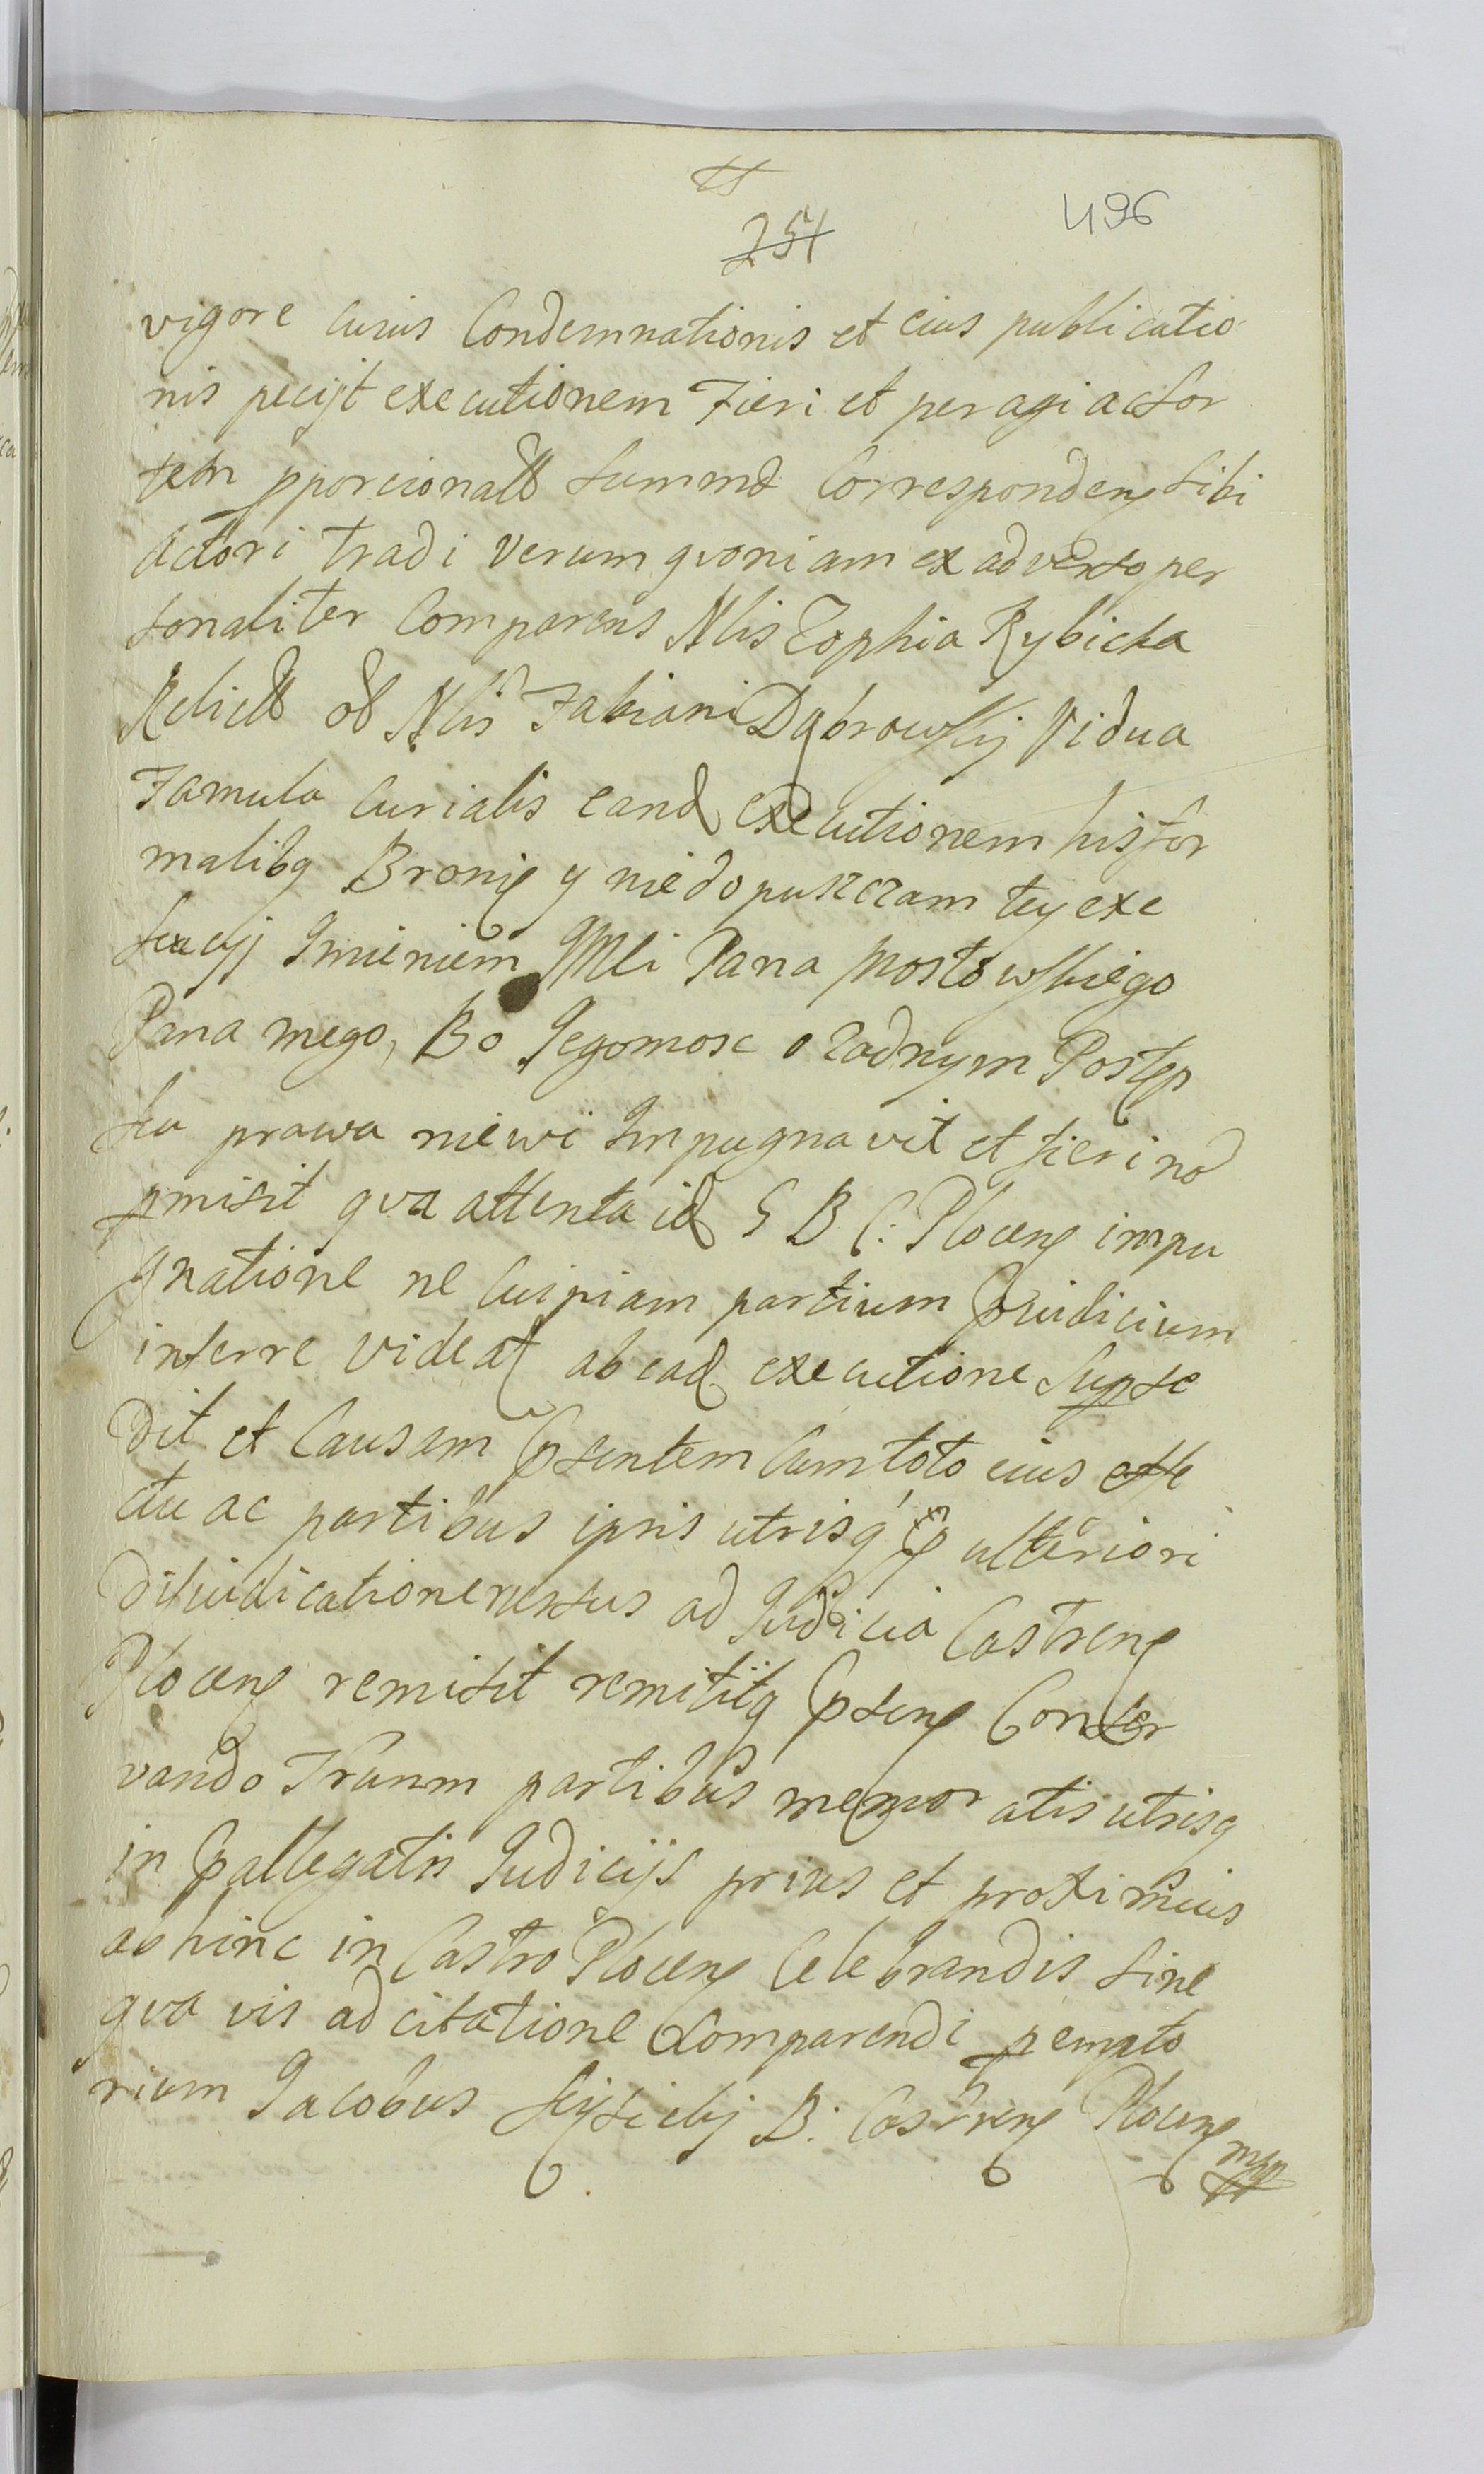 496
254
vigore cuius Condemnationis et eius publicatio
nis pecijt executionem Fieri et peragi ac sor
tem pporcionalē summæ Correspondeñ sibi
Actori tradi Verum qvoniam ex adverso per
sonaliter Comparens Nlis Zophia Rybicka
Relicta ol Nlis Fabiani Dąbrowskij Vidua
Famula Curialis eand executionem his for
malibq Bronię y niedopuszczam tey exe
kucyj Imieniem JMCi Pana Mostowskiego
Pana mego, Bo Jegomosc o zadnym Postęp
ku prawa niewi Impugnavit et fieri nō
pmisit qva attenta id S B C: Ploceñ impu
gnatione ne Cuipiam partium Pjudicium
inferre videat ab ead executione Supse
dit et Causam Psentem Cum toto eius effe
ctu ac partibus ipsis utrisq' p ulteriori
Dijudicatione rursus ad Judicia Castreñ
Ploceñ remisit remititq Pseñ Conser
vando Trmnm partibus memor atis utrisq
in Pallegatis Judicijs prius et proximius
ab hinc in Castro Ploceñ Celebrandis sine
qva vis adcitatione Comparendi pempto
rium Jacobus B: Castreñ Ploceñ
mpp